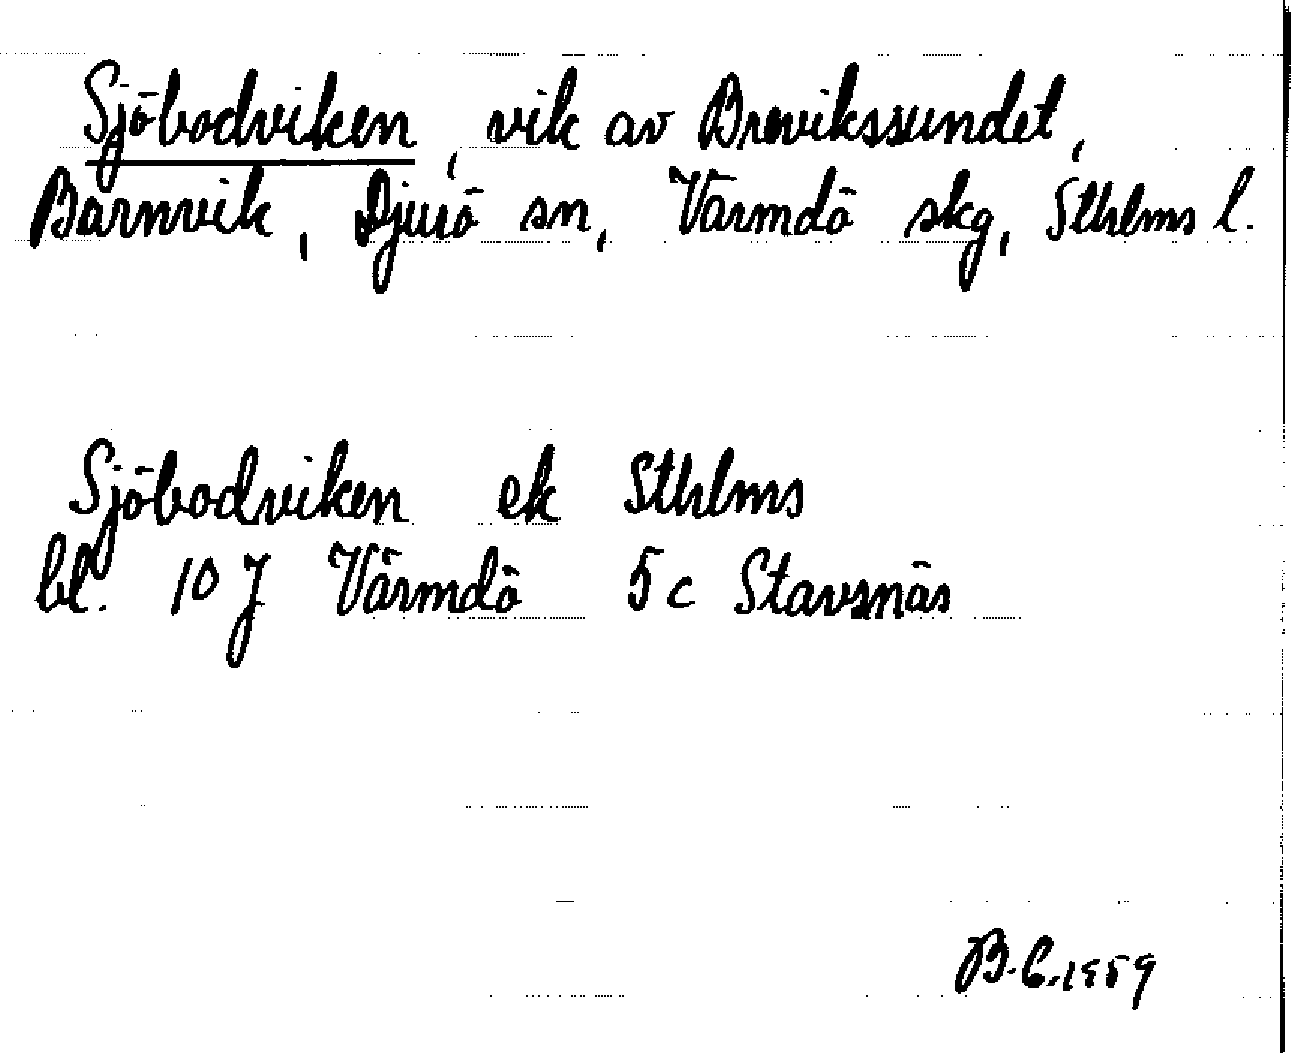 Sjöbodviken, vik av Brevikssundet,
Barnvik, Djurö sn, Värmdö skg, Sthlms l.
Sjöbodviken ek Sthlms
bl. 10 J Värmdö 5 c Stavsnäs
B.C. 1959